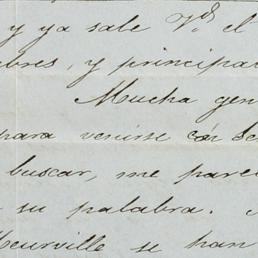 y ya sale Vd el
bres, y principa
Mucha gen
para venirse con
buscar, me pare
su palabra.
eurville se han